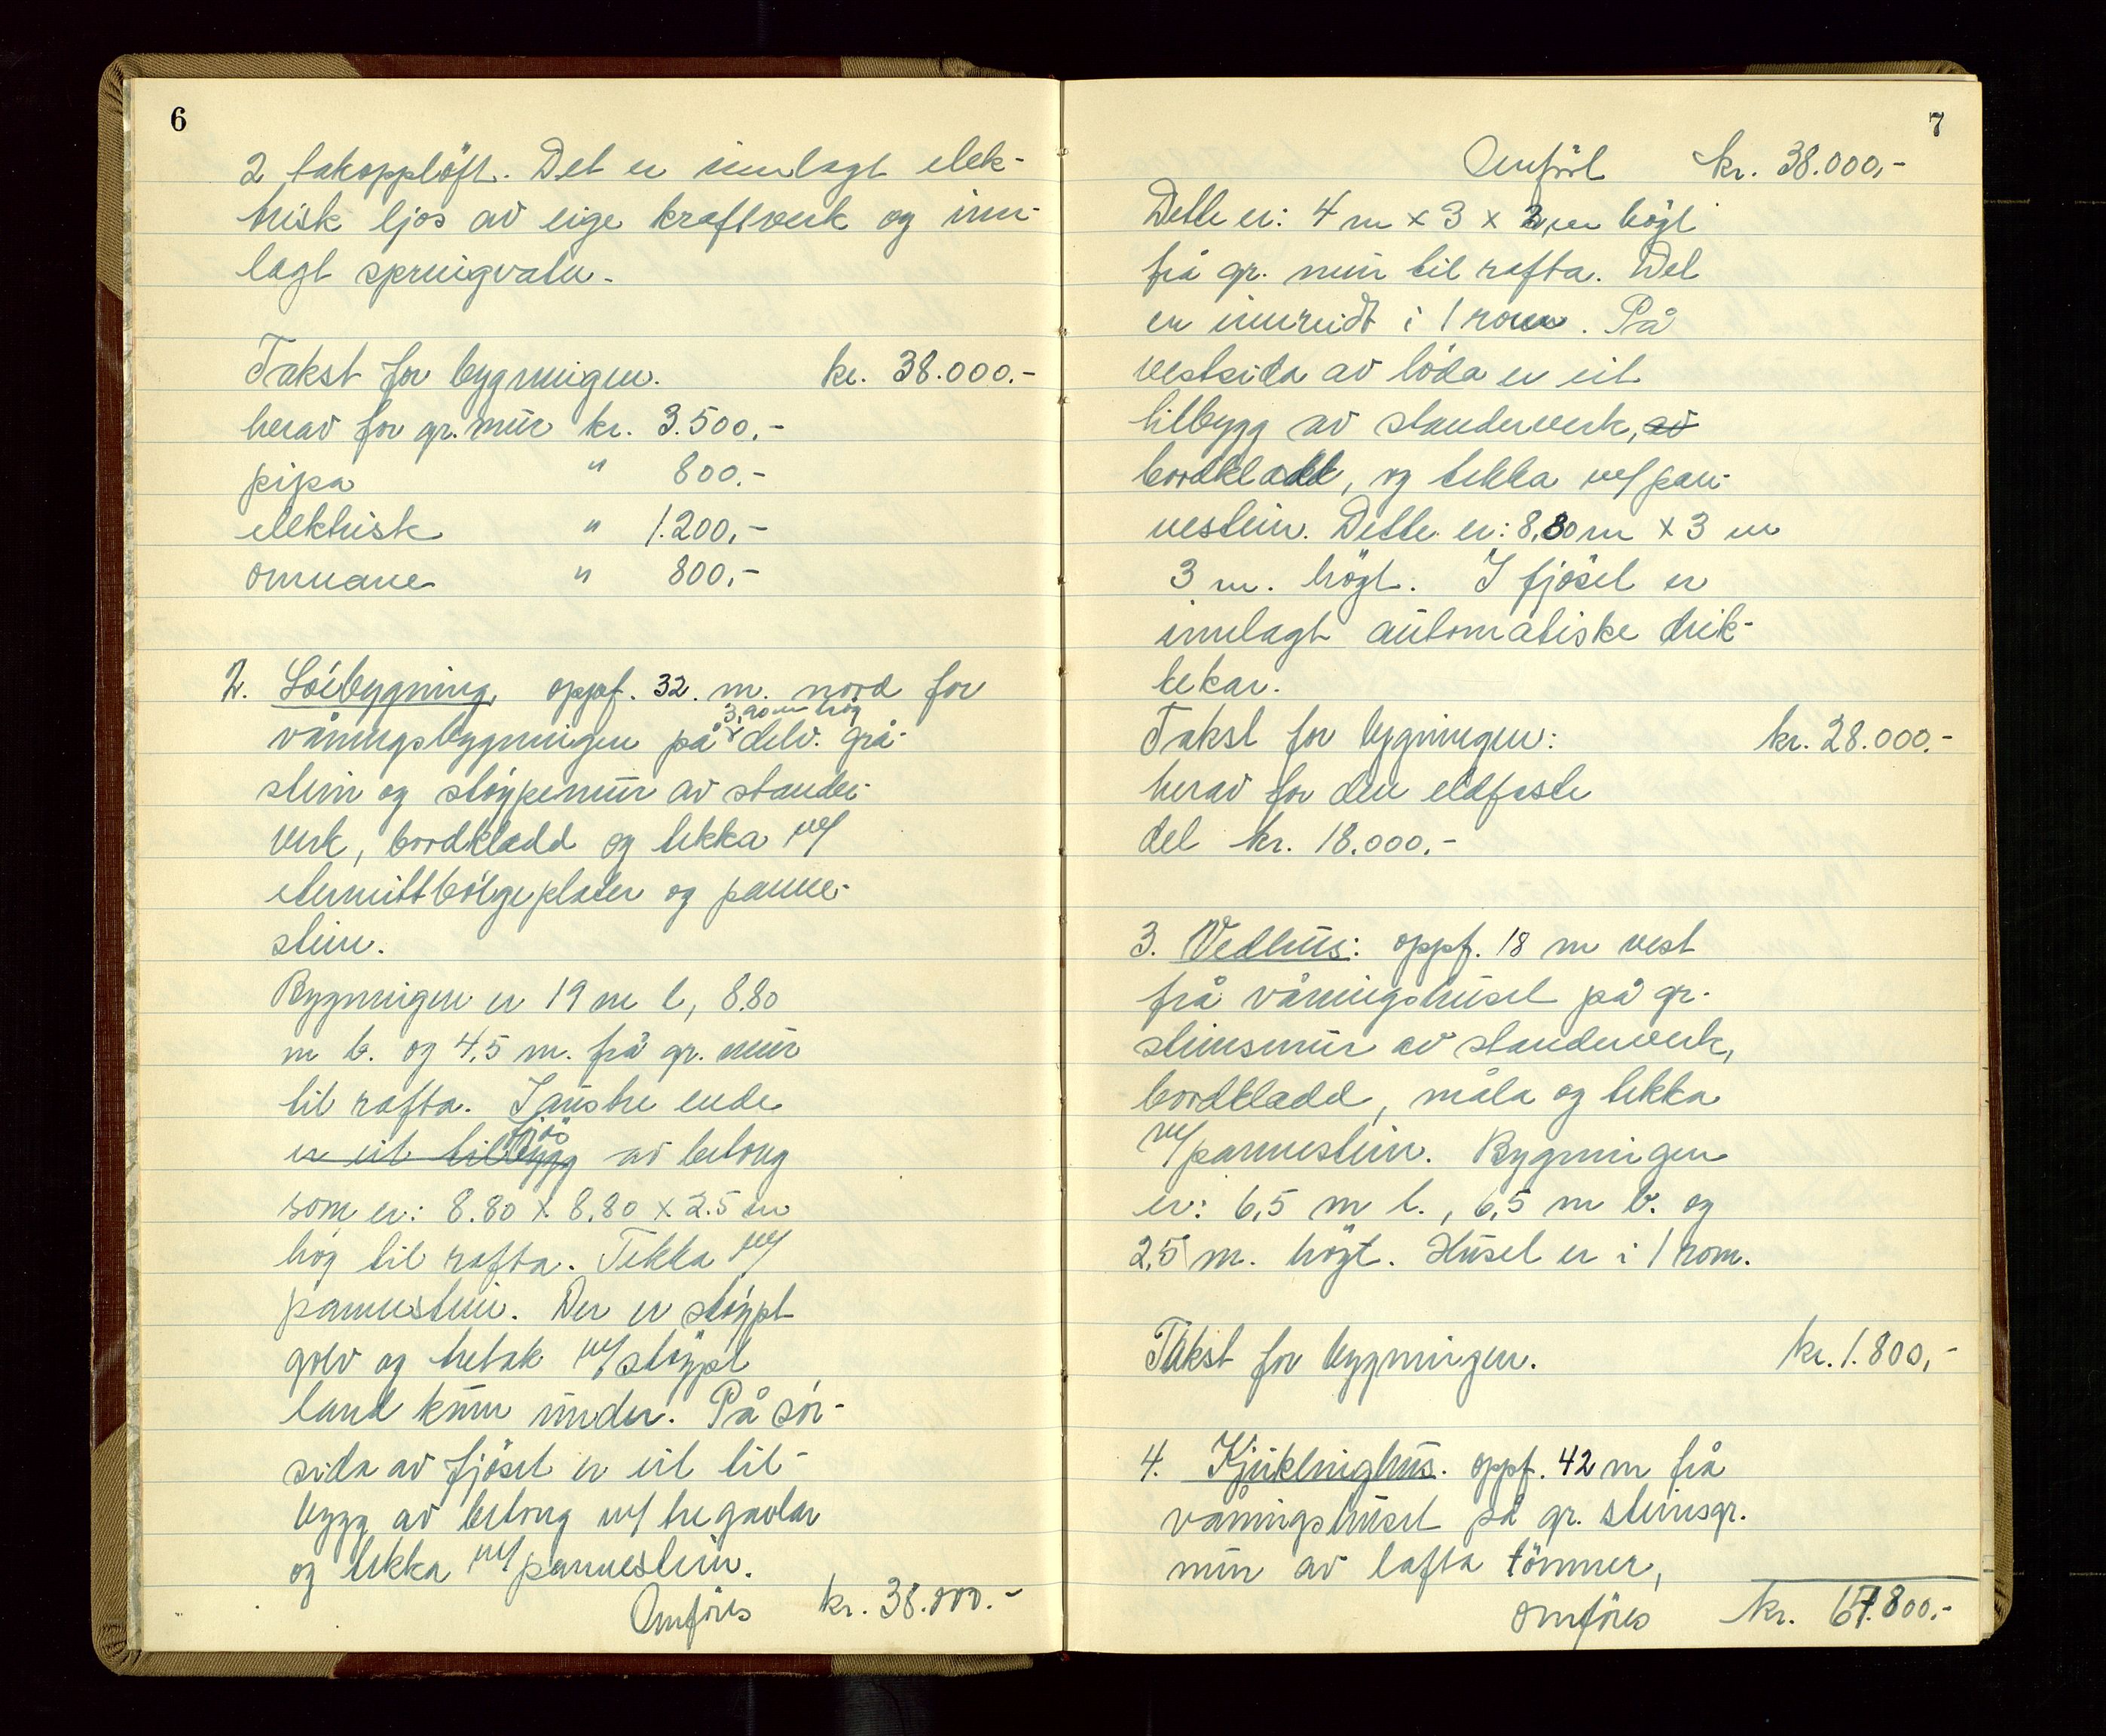 6
2 takopplöft. Det er innlagt elek-
trisk ljos av eige kraftverk og inn-
lagt springvatn.
Takst for bygningen. kr. 38.000.-
herav for gr. mur kr. 3.500,-
pipa " 800.-
elektrisk " 1.200,-
omnane " 800,-
2. Löebygning oppf. 32. m. nord for
3,90 m høg
våningsbygningen på delv. grå-
stein og støypemur av stander-
verk, bordkledd og tekka m/
eternittbølgeplater og panne-
stein.
Bygningen er 19 m l, 8.80
m b. og 4,5 m. frå gr. mur
til rafta. I austre ende
fjös
er eit tilbygg av betong
som er: 8.80 x 8.80 x 2.5 m
høg til rafta. Tekka m/
pannestein. Der er støypt
golv og tretak m/støypt
land kum under. På sör-
sida av fjöset er eit til-
bygg av betong m/ tregavlar
og tekka m/pannestein.
Omföres kr. 38.000.-
7
Omfört kr. 38.000,-
Dette er: 4 m x 3 x 2 m högt
frå gr. mur til rafta. Det
er innreidt i 1 rom. På
vestsida av löda er eit
tilbygg av standerverk, av
bordkledd, og tekka m/pan-
nestein. Dette er: 8,80 m x 3 m
3 m. högt. I fjöset er
innlagt automatiske drik-
kekar.
Takst for bygningen: kr. 28.000.-
herav for den eldfaste
del kr. 18.000.-
3. Vedhus: oppf. 18 m vest
frå våningshuset på gr.
steinsmur av standerverk,
bordkledd, måla og tekka
m/pannestein. Bygningen
er: 6,5 m l., 6,5 m b. og
2,5 m. högt. Huset er i 1 rom.
Takst for bygningen. kr. 1.800,-
4. Kjuklinghus. oppf. 42 m frå
våningshuset på gr. steinsgr.
mur av lafta tömmer,
omföres kr. 67.800.-